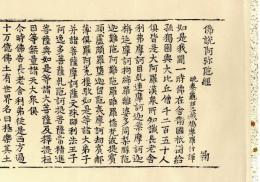 佛說阿彌陀經
姚秦龜茲三藏鳩摩羅什譯
如是我聞一時佛在舍衛國祇樹給
孤獨園與大比丘僧千二百五十人
俱皆是大阿羅漢衆所知識長老舍
利弗摩訶目乾連摩訶迦葉摩訶迦
栴延摩訶拘絺羅離婆多周梨槃陀
迦難陀阿難陀羅睺羅憍梵波提賓
頭盧頗羅墮迦留陀夷摩訶劫賓那
薄拘羅阿㝹樓馱如是等諸大弟子
并諸菩薩摩訶薩文殊師利法王子
阿逸多菩薩乾陀訶提菩薩常精進
菩薩與如是等諸大菩薩及釋提桓
因等無量諸天大衆俱
尒時佛告長老舍利弗從是西方過
十万億佛土有世界名曰極樂其土